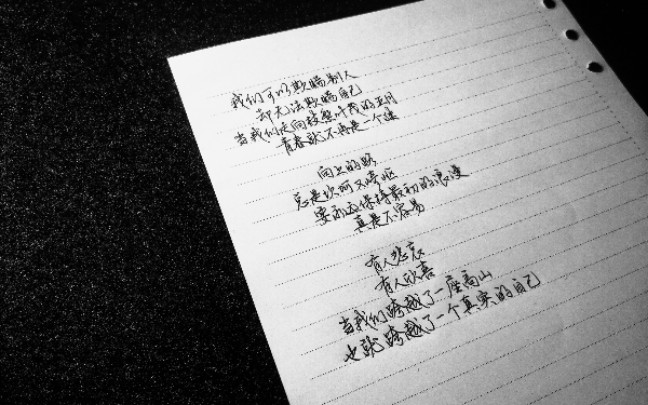 我们可以欺瞒别人
却无法欺瞒自己
当我们走向枝繁叶茂的五月
青春就不再是一个谜
向上的路
总是坎坷又崎岖
要永远保持最初的浪漫
真是不容易
有人悲哀
有人欣喜
当我们跨越了一座高山
也就跨越了一个真实的自己